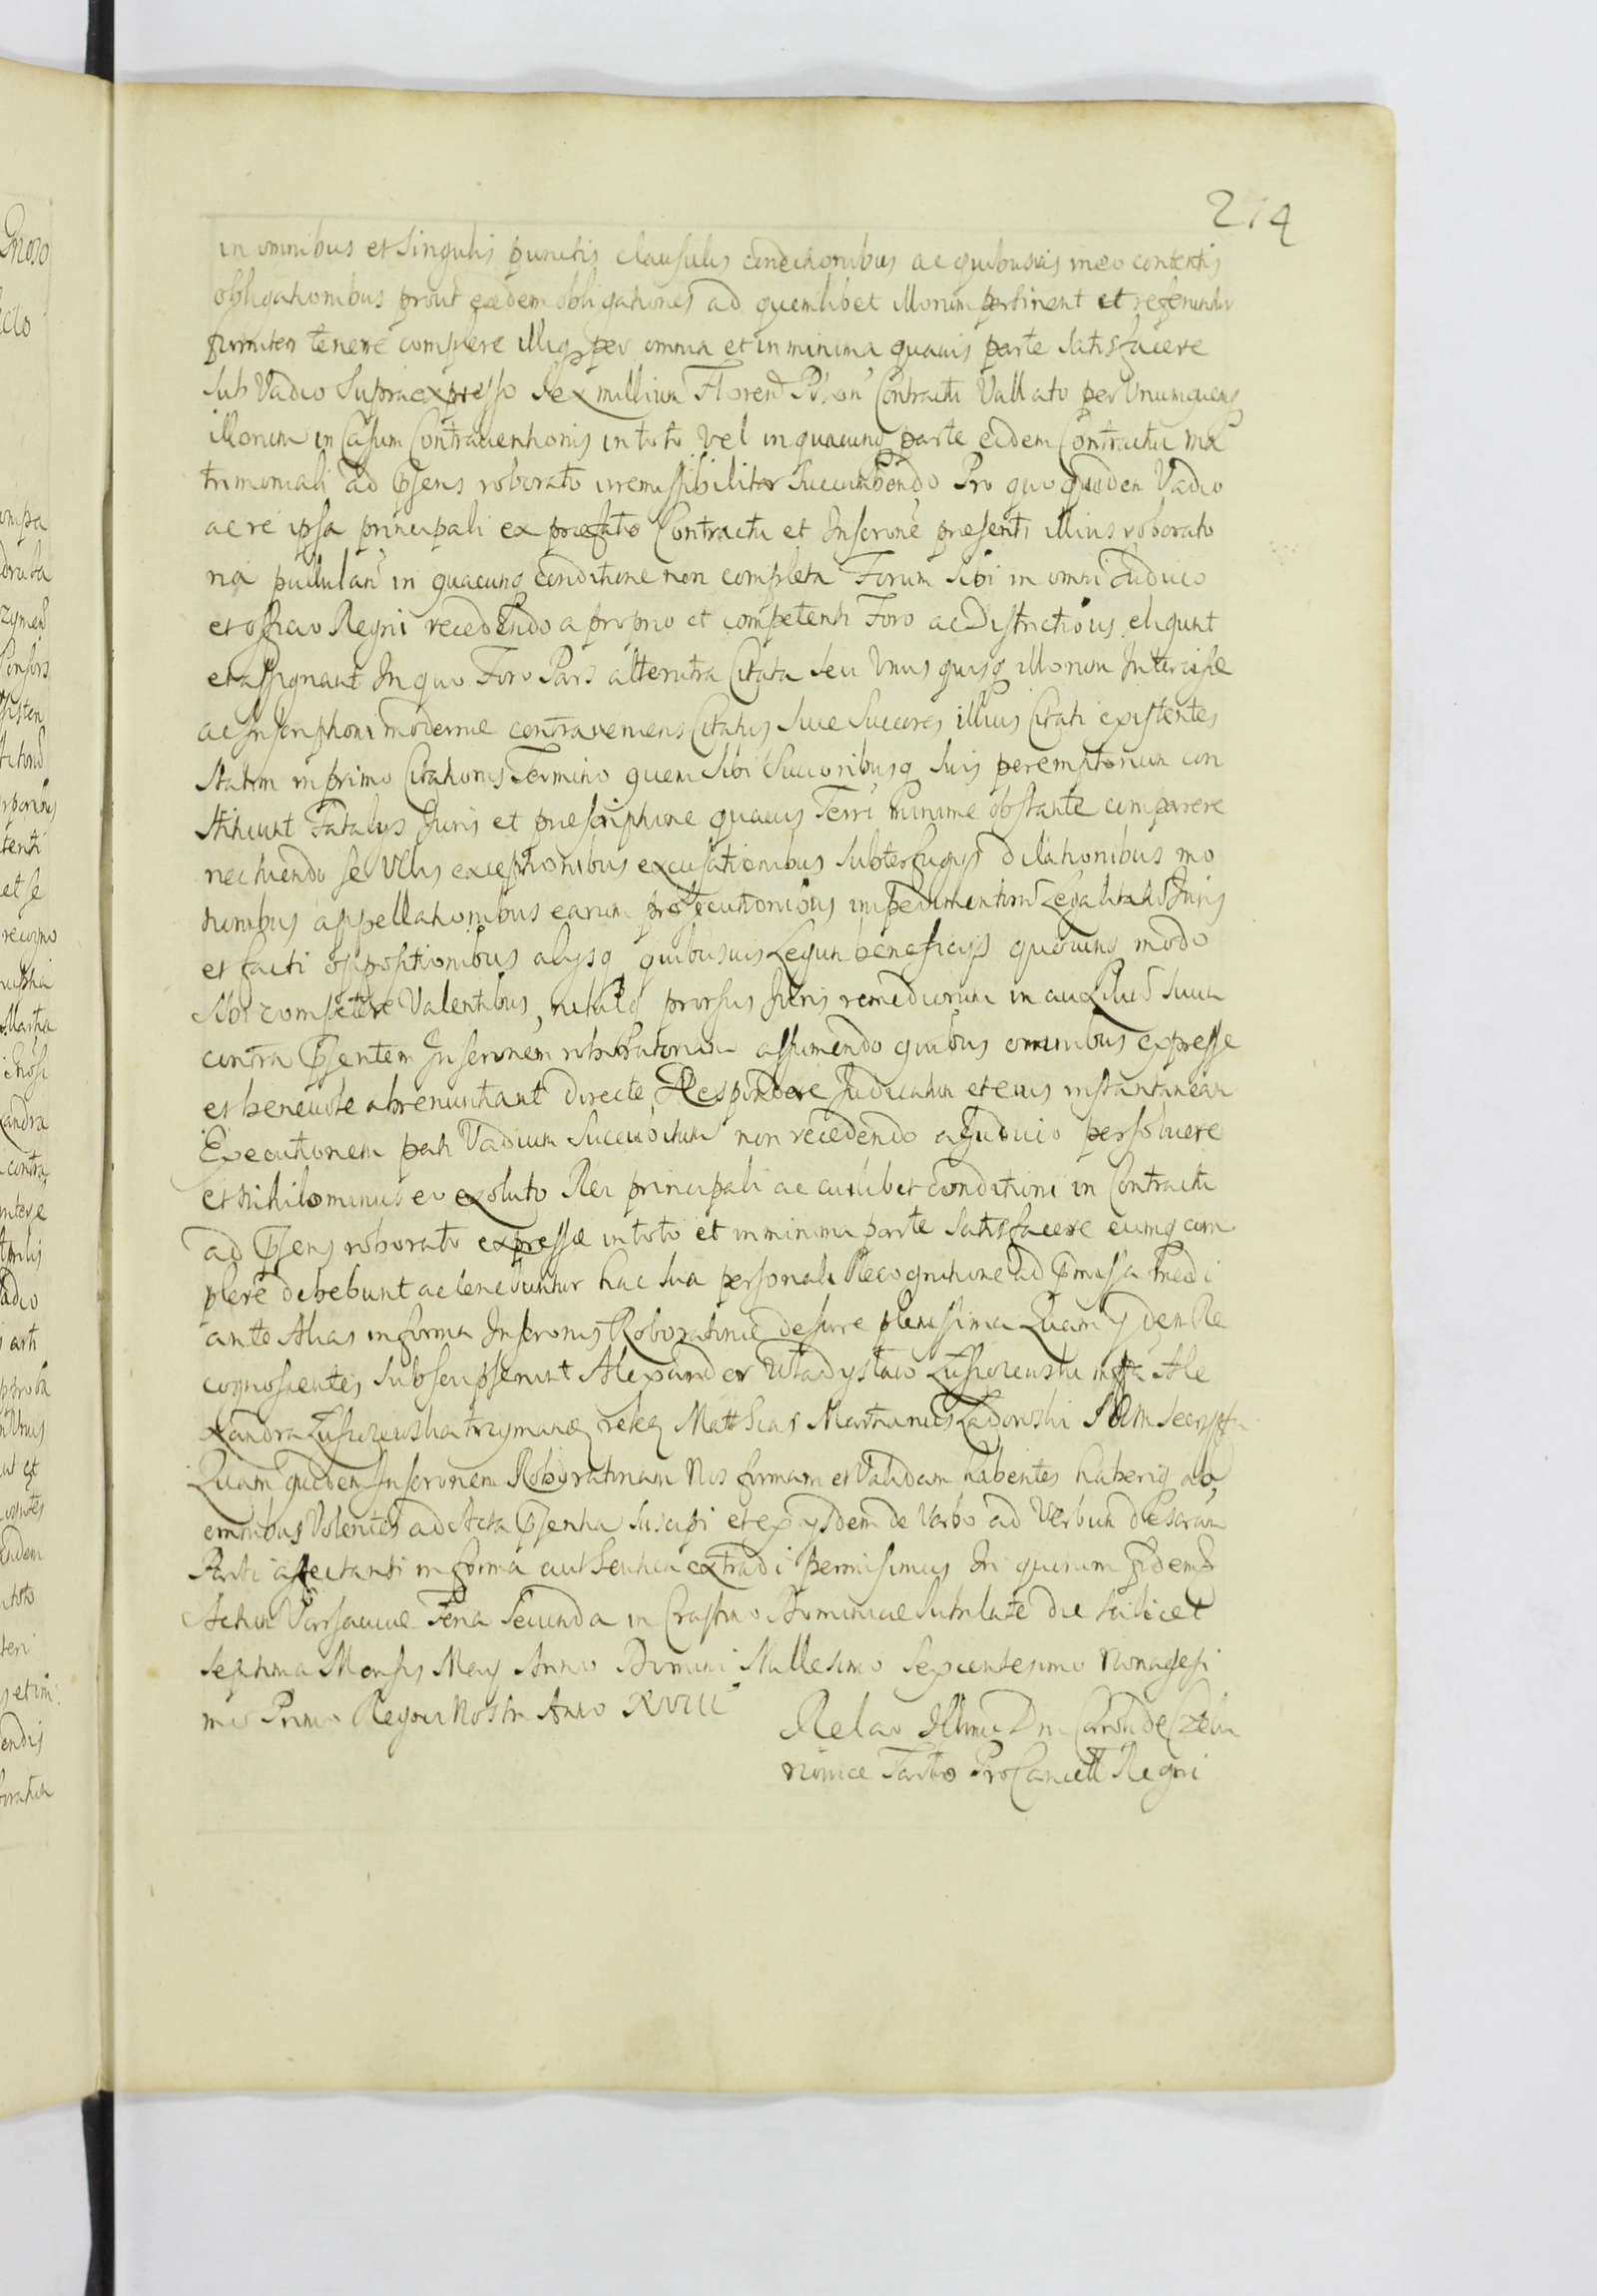 214
in omnibus et singulis punctis clausulis conditionibus ac quibusvis in eo contentis
obligationibus prout eædem obligationes ad quemlibet illorum pertinent et referuntur
firmiter tenere complere illisq per omnia et in minima quavis parte satisfacere
sub Vadio supra expresso sex millium Floren Polon Contractu Vallato per Unumquemq
illorum in Casum Contraventionis in toto vel in quacunq parte eidem Contractui Ma
trimoniali ad Pñsens roborato irremissibiliter succumbendo Pro quo quidem Vadio
ac re ipsa principali ex præfato Contractu et Inscrone præsenti illius roborato
ria pullulan in quacunq conditione non completa Forum sibi in omni Judicio
et officio Regni recedendo a proprio et competenti Foro ac Districtibus eligunt
et assignant In quo Foro Pars alterutra Citata seu Unus quisq illorum Intercisæ
ac Inscriptioni modernæ contraveniens Citatus sive Succores illius Citati existentes
statim in primo Citationis Termino quem sibi Succoribusq suis peremptorium con
stituunt Fatalijs Juris et præscriptione quavis Terri minime obstante comparere
nec tuendo se Ullis exceptionibus excusationibus subterfugijs dilationibus mo
tionibus appellationibus earum prosecutionibus impedimentor Legalitatu Juris
et facti oppositionibus alijsq quibusuis Legum beneficijs quovis modo
sibi competere Valentibus, nihilq prorsus Juris remediorum in auxiliu suum
contra Pñsentem Inscronem roboratoriam assumendo quibus omnibus expresse
et benevole abrenuntiant directe Respondere Judicatum et eius instantaneam
Executionem pati Vadium succubitum non recedendo a Judicio persolvere
et nihilominus eo exoluto Rei principali ac cuilibet conditioni in Contractu
ad Pñsens roborato expressæ in toto et in minima parte satisfacere eumq com
plere debebunt ac tenebuntur hac sua personali Recognitione ad Pmissa medi
ante Alias in forma Inscronis Roboratoriæ de jure plenissima Quam ijdem Re
cognoscentes subscripserunt Alexander Władysław mpp Ale
xandra trzymane rekę Matthias Martianus Ładowski
Quam quidem Inscronem Roboratoriam Nos firmam et Validam habentes haberiq ab
omnibus Volentes ad Acta Pñsentia suscipi et ex ijsdem de Verbo ad Verbum descriptam
Parti affectanti in forma authentica extradi permisimus In quorum fidem
Actum Varsaviæ Feria Secunda in Crastino Dominicæ Jubilate die scilicet
septima Mensis Maij Anno Domini Millesimo Sexcentesimo Nonagesi
mo Primo Regni Nostri Anno XVIII
Relao Illmi Dni Caroli de
Tarło ProCancell Regni